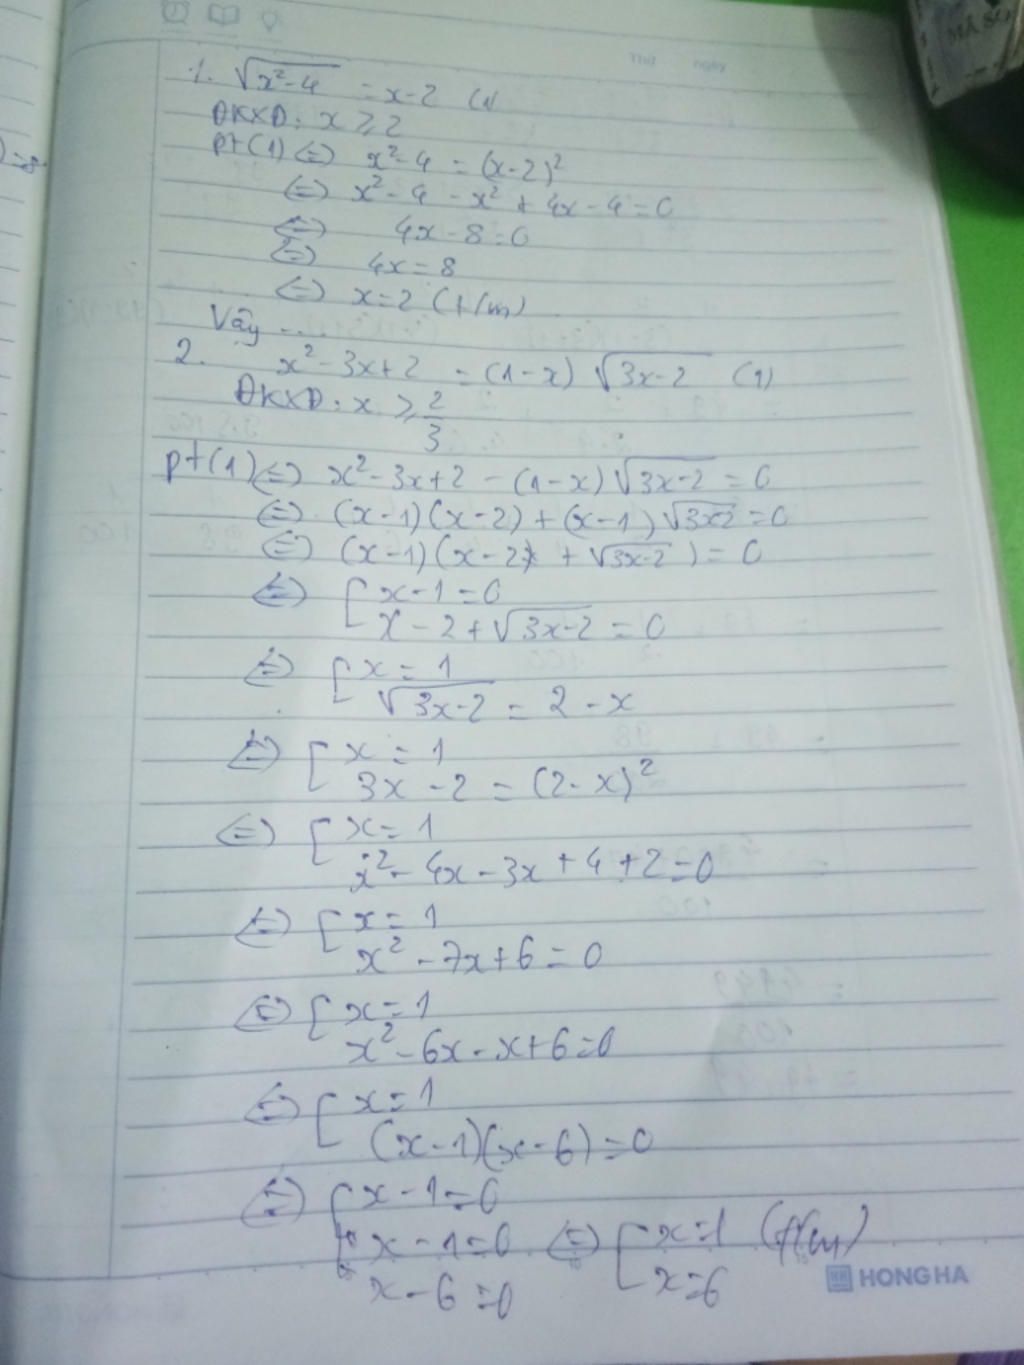 1. √(x²-4) = x-2 (1)
ĐKXĐ: x ≥ 2
pt(1) ⇔ x²-4 = (x-2)²
⇔ x² - 4 - x² + 4x - 4 = 0
⇔ 4x - 8 = 0
⇔ 4x = 8
⇔ x = 2 (t/m)
Vậy ...
2. x² - 3x + 2 = (1-x) √(3x-2) (1)
ĐKXĐ: x ≥ 2/3
pt(1) ⇔ x² - 3x + 2 - (1-x) √(3x-2) = 0
⇔ (x-1)(x-2) + (x-1) √(3x-2) = 0
⇔ (x-1)(x-2 + √(3x-2)) = 0
⇔ [ x-1 = 0
x - 2 + √(3x-2) = 0
⇔ [ x = 1
√(3x-2) = 2 - x
⇔ [ x = 1
3x - 2 = (2-x)²
⇔ [ x = 1
x² - 4x - 3x + 4 + 2 = 0
⇔ [ x = 1
x² - 7x + 6 = 0
⇔ [ x = 1
x² - 6x - x + 6 = 0
⇔ [ x = 1
(x-1)(x-6) = 0
⇔ [ x - 1 = 0
x - 1 = 0 ⇔ [ x = 1 (t/m)
x - 6 = 0 x = 6
HONG HA